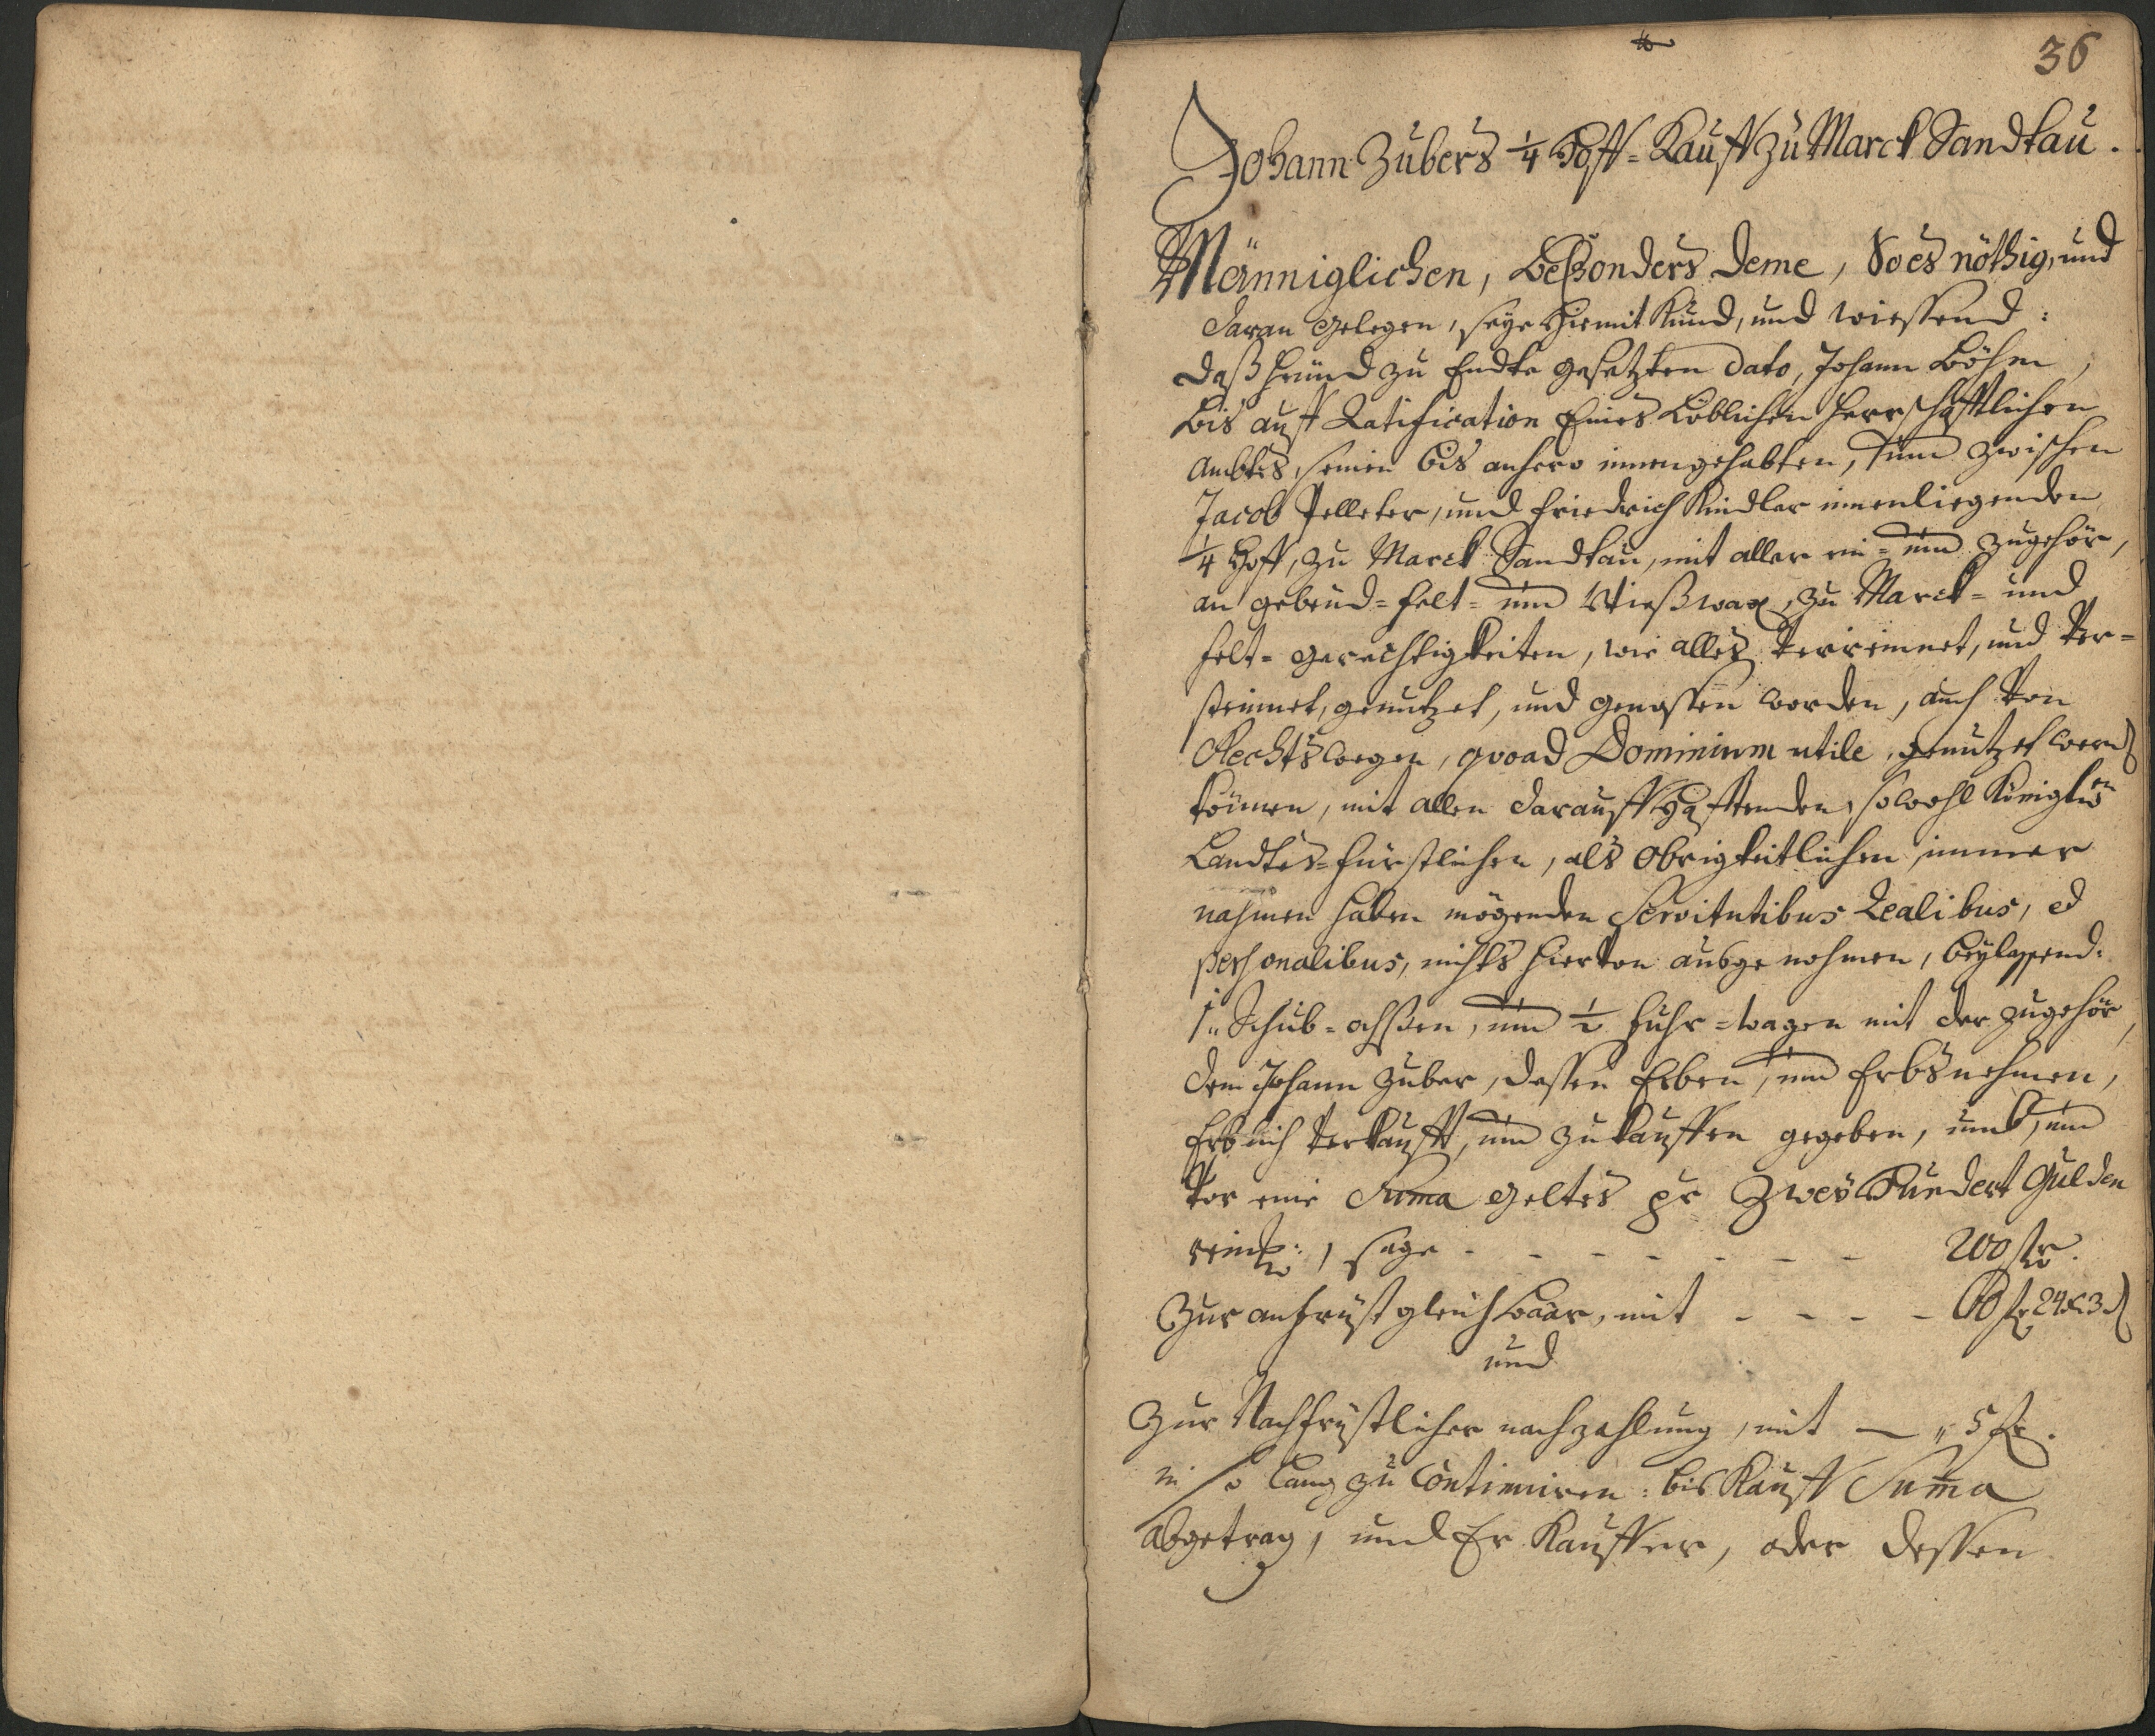 36
Johann Zubers 1/4 Hoff=Kauff zu Marck Sandtau.
Männiglichen, beßonders deme, So es nöthig, und
daran gelegen, seye hiemit Kund, und wissend:
daß heünd zu Endte gesetzten dato, Johann Böhm,
bis auff Ratification Eines Löblichen Herrschafftlichen
Ambtes, seinen bis anhero innengehabten, und zwischen
Jacob Pelleter, und Friedrich Kindler innenliegenden
1/4 Hoff, zu Marck Sandtau, mit aller ein= und zugehör,
an gebeud= felt= und Wießwax, zu Marck= und
felt= gerechtigkeiten, wie alles verreinnet, und ver=
steinnet, genutzet, und genossen worden, auch von
Rechtswegen, quoad Dominium utile, genutzet werd
können, mit allen darauff hafftenden, sowohl Königlen
Landtes=fürstlichen, als obrigkeitlichen, immer
nahmen haben mögenden Servitutibus Realibus, ed
personalibus, nichts hiervon ausgenohmen, beylassend:
1 " Schub=ochßen, und 1/2 fuhr=wagen mit der zugehör,
dem Johann Zuber, dessen Erben, und Erbsnehmen,
Erblich verkaufft, und zukauffen gegeben, umb, und
vor eine Suma geltes pr Zweÿ Hundert Gulden
reinl:, sage - - - - - - - 200 fl.
Zur anfrüst gleich baar, mit - - - - 60 fl 24 x 3 d
und
Zur Nachfrüstlicher nachzahlung, mit — " 5 fl.
so lang zu Continiuiren: bis Kauff Suma
abgetrag, und Er Kauffer, oder dessen